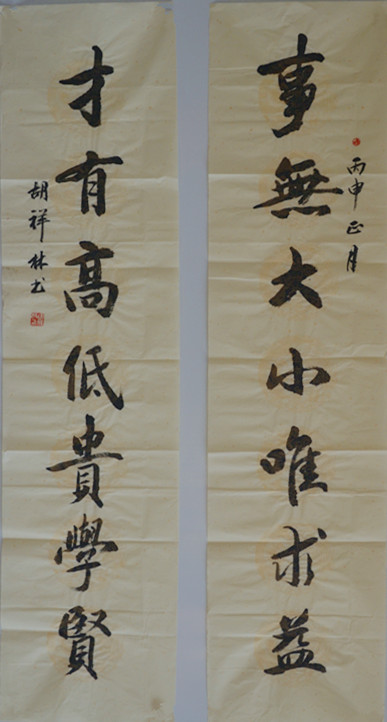 事無大小唯求益
丙申正月
才有高低貴學賢
胡祥林书